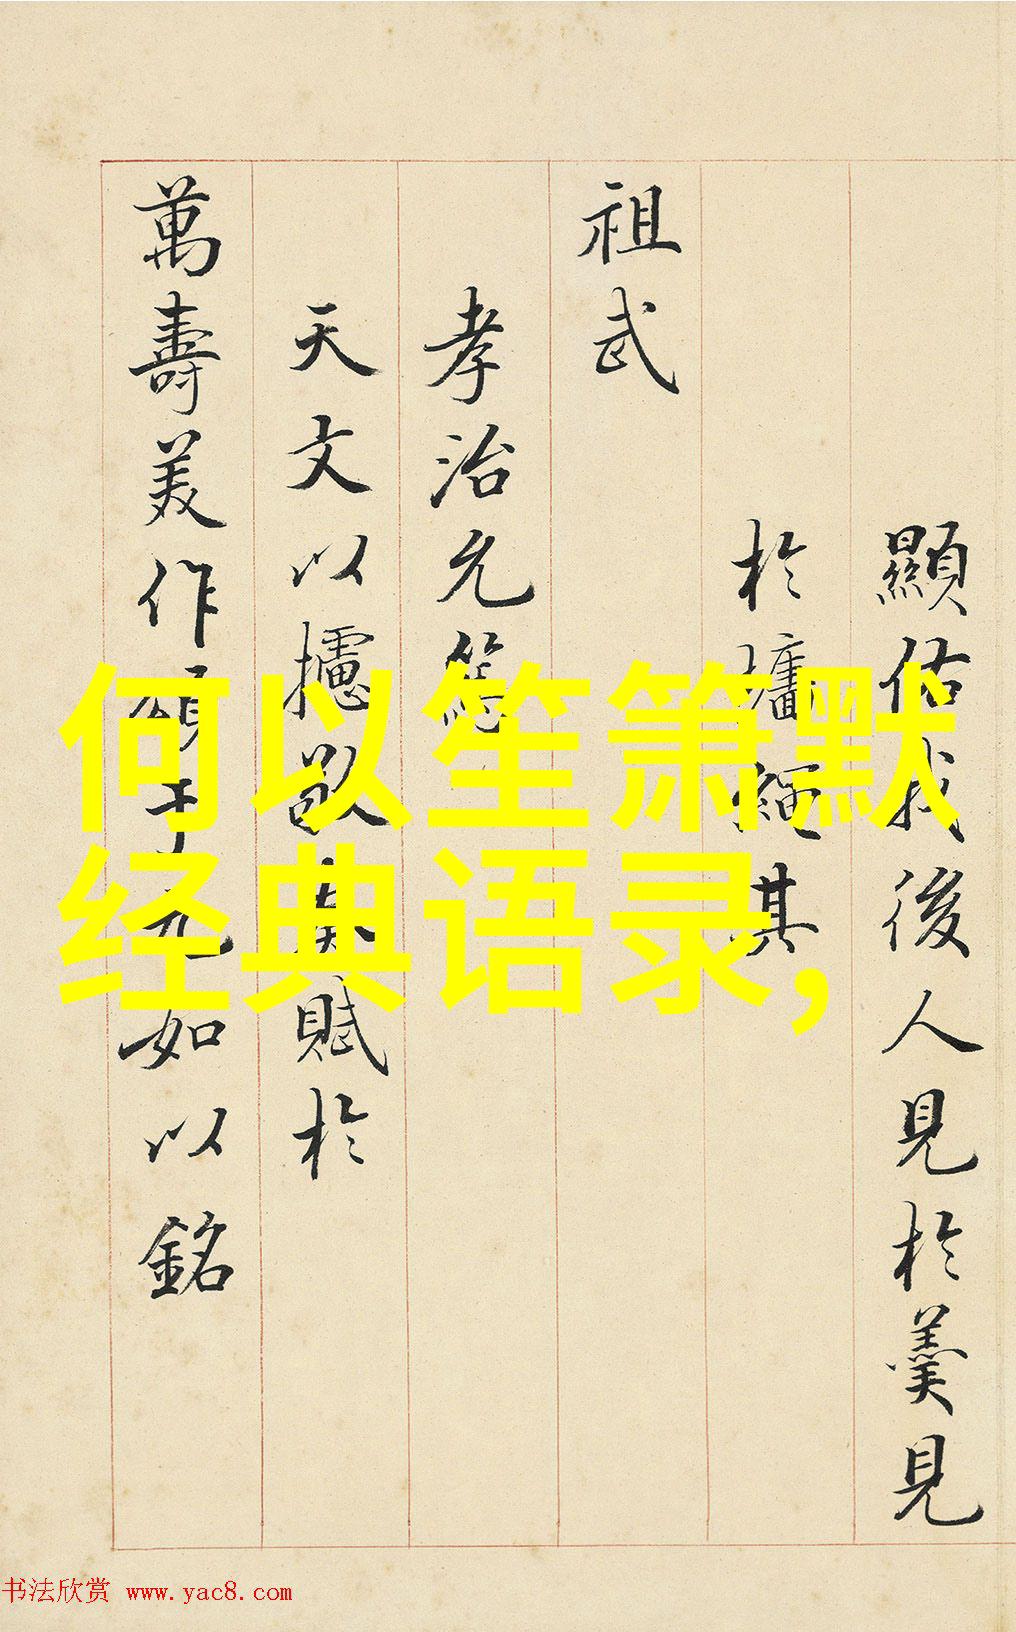 顯佑我後人見於羹見
於墻繩其
祖武
孝治允
天文以攄歌賦於
萬壽美作頌如以銘
何以笙箫默
经典语录,
书法欣赏 www.yac8.com